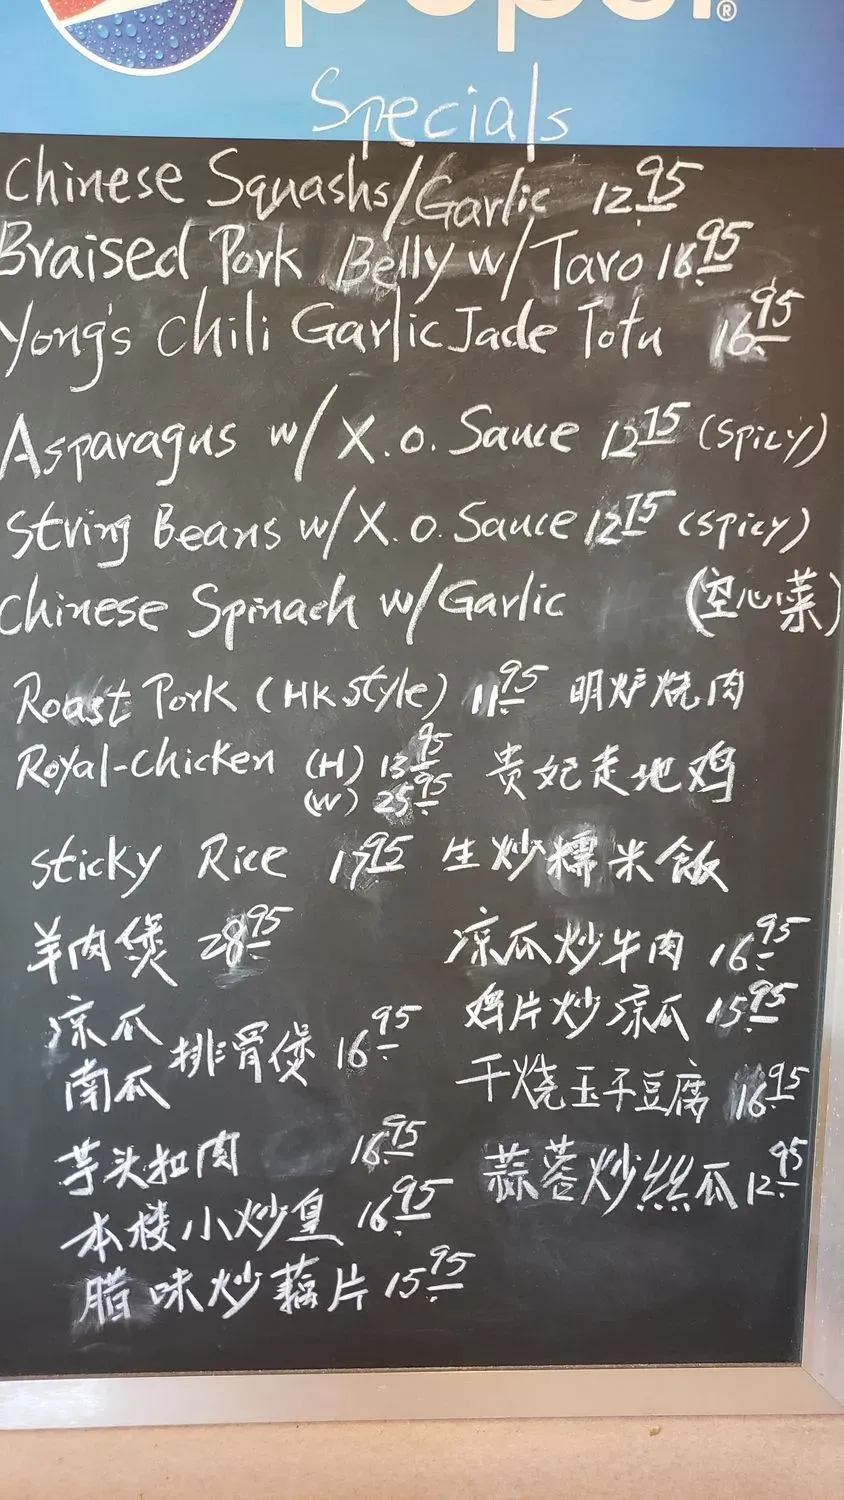 pepsi®
Specials
Chinese Squashs/Garlic 12.95
Braised Pork Belly w/Taro 16.95
Yong's Chili Garlic Jade Tofu 16.95
Asparagus w/ X.O. Sauce 12.75 (Spicy)
String Beans w/ X.O. Sauce 12.75 (Spicy)
Chinese Spinach w/Garlic (空心菜)
Roast Pork (HK Style) 11.95 明炉烧肉
Royal-Chicken (H) 13.95 贵妃走地鸡
(W) 25.95
Sticky Rice 17.95 生炒糯米飯
羊肉煲 28.95
凉瓜
南瓜 排滑煲 16.95
芋头扣肉 16.95
本楼小炒皇 16.95
腊味炒藕片 15.95
凉瓜炒牛肉 16.95
鸡片炒凉瓜 15.95
干烧玉子豆腐 16.95
蒜蓉炒丝瓜 12.95